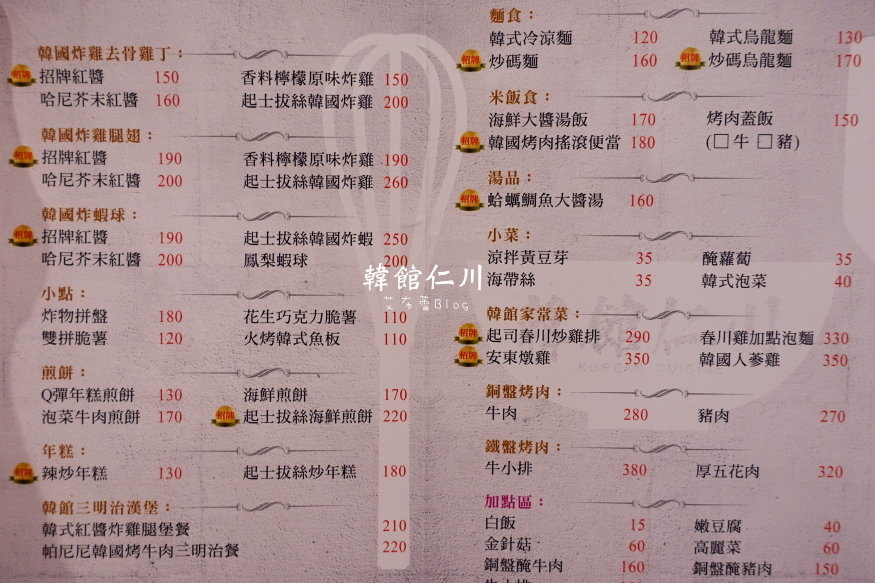 韓國炸雞去骨雞丁：
招牌 招牌紅醬 150 香料檸檬原味炸雞 150
哈尼芥末紅醬 160 起士拔絲韓國炸雞 200
韓國炸雞腿翅：
招牌 招牌紅醬 190 香料檸檬原味炸雞 190
哈尼芥末紅醬 200 起士拔絲韓國炸雞 260
韓國炸蝦球：
招牌 招牌紅醬 190 起士拔絲韓國炸蝦 250
哈尼芥末紅醬 200 鳳梨蝦球 200
小點：
炸物拼盤 180 花生巧克力脆薯 110
雙拼脆薯 120 火烤韓式魚板 110
煎餅：
Q彈年糕煎餅 130 海鮮煎餅 170
泡菜牛肉煎餅 170 招牌 起士拔絲海鮮煎餅 220
年糕：
招牌 辣炒年糕 130 起士拔絲炒年糕 180
韓館三明治漢堡：
韓式紅醬炸雞腿堡餐 210
帕尼尼韓國烤牛肉三明治餐 220
韓館仁川
艾布蕾Blog
麵食：
韓式冷涼麵 120 韓式烏龍麵 130
招牌 炒碼麵 160 招牌 炒碼烏龍麵 170
米飯食：
海鮮大醬湯飯 170 烤肉蓋飯 150
招牌 韓國烤肉搖滾便當 180 (□牛 □豬)
湯品：
招牌 蛤蠣鯛魚大醬湯 160
小菜：
涼拌黃豆芽 35 醃蘿蔔 35
海帶絲 35 韓式泡菜 40
韓館家常菜：
招牌 起司春川炒雞排 290 春川雞加點泡麵 330
招牌 安東燉雞 350 韓國人蔘雞 350
銅盤烤肉：
牛肉 280 豬肉 270
鐵盤烤肉：
牛小排 380 厚五花肉 320
加點區：
白飯 15 嫩豆腐 40
金針菇 60 高麗菜 60
銅盤醃牛肉 160 銅盤醃豬肉 150